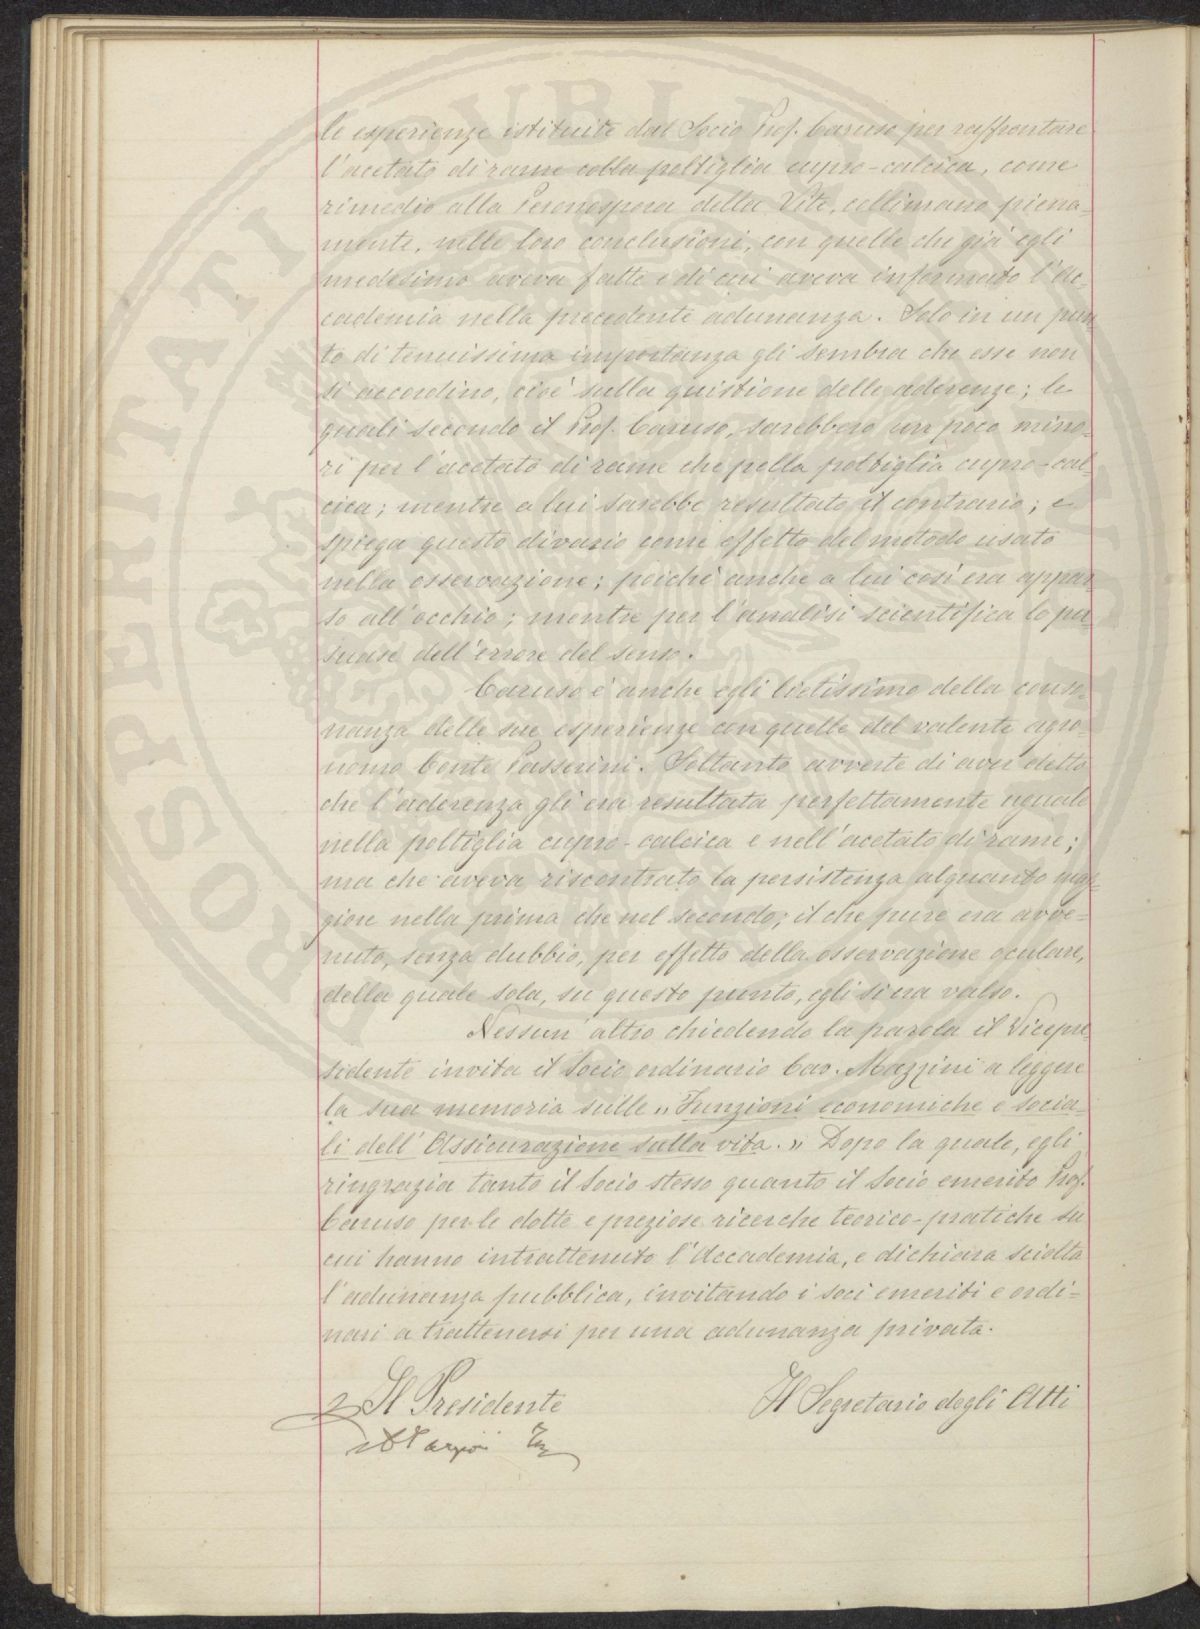 le esperienze istituite dal Socio Prof. Caruso per raffrontare
l'acetato di rame colla poltiglia cupro-calcica, come
rimedio alla Peronospora della Vite, collimano piena=
mente, nelle loro conclusioni, con quelle che già egli
medesimo aveva fatte e di cui aveva informato l'Ac=
cademia nella precedente adunanza. Solo in un pun
to di tenuissima importanza gli sembra che esse non
si accordino, cioè sulla quistione delle aderenze; le
quali secondo il Prof. Caruso, sarebbero un poco mino=
ri per l'acetato di rame che pella poltiglia cupro-cal
cica; mentre a lui sarebbe resultato il contrario; e
spiega questo divario come effetto del metodo usato
nella osservazione; poichè anche a lui così era appar
so all'occhio; mentre per l'analisi scientifica lo per
suase dell'errore del senso.
Caruso è anche egli lietissimo della conso=
nanza delle sue esperienze con quelle del valente agro=
nomo Conte Passerini. Soltanto avverte di aver detto
che l'aderenza gli era resultata perfettamente uguale
nella poltiglia cupro-calcica e nell'acetato di rame;
ma che aveva riscontrato la persistenza alquanto mag=
giore nella prima che nel secondo; il che pure era avve=
nuto, senza dubbio, per effetto della osservazione oculare,
della quale sola, su questo punto, egli si era valso.
Nessun altro chiedendo la parola il Vicepre
sidente invita il Socio ordinario Cav. Mazzini a leggere
la sua memoria sulle „Funzioni economiche e socia=
li dell'Assicurazione sulla vita.„ Dopo la quale, egli
ringrazia tanto il Socio stesso quanto il Socio emerito Prof.
Caruso per le dotte e preziose ricerche teorico-pratiche su
cui hanno intrattenuto l'Accademia, e dichiara sciolta
l'adunanza pubblica, invitando i soci emeriti e ordi=
nari a trattenersi per una adunanza privata.
Il Presidente
Il Segretario degli Atti
PROSPERITATI PVBLICAE